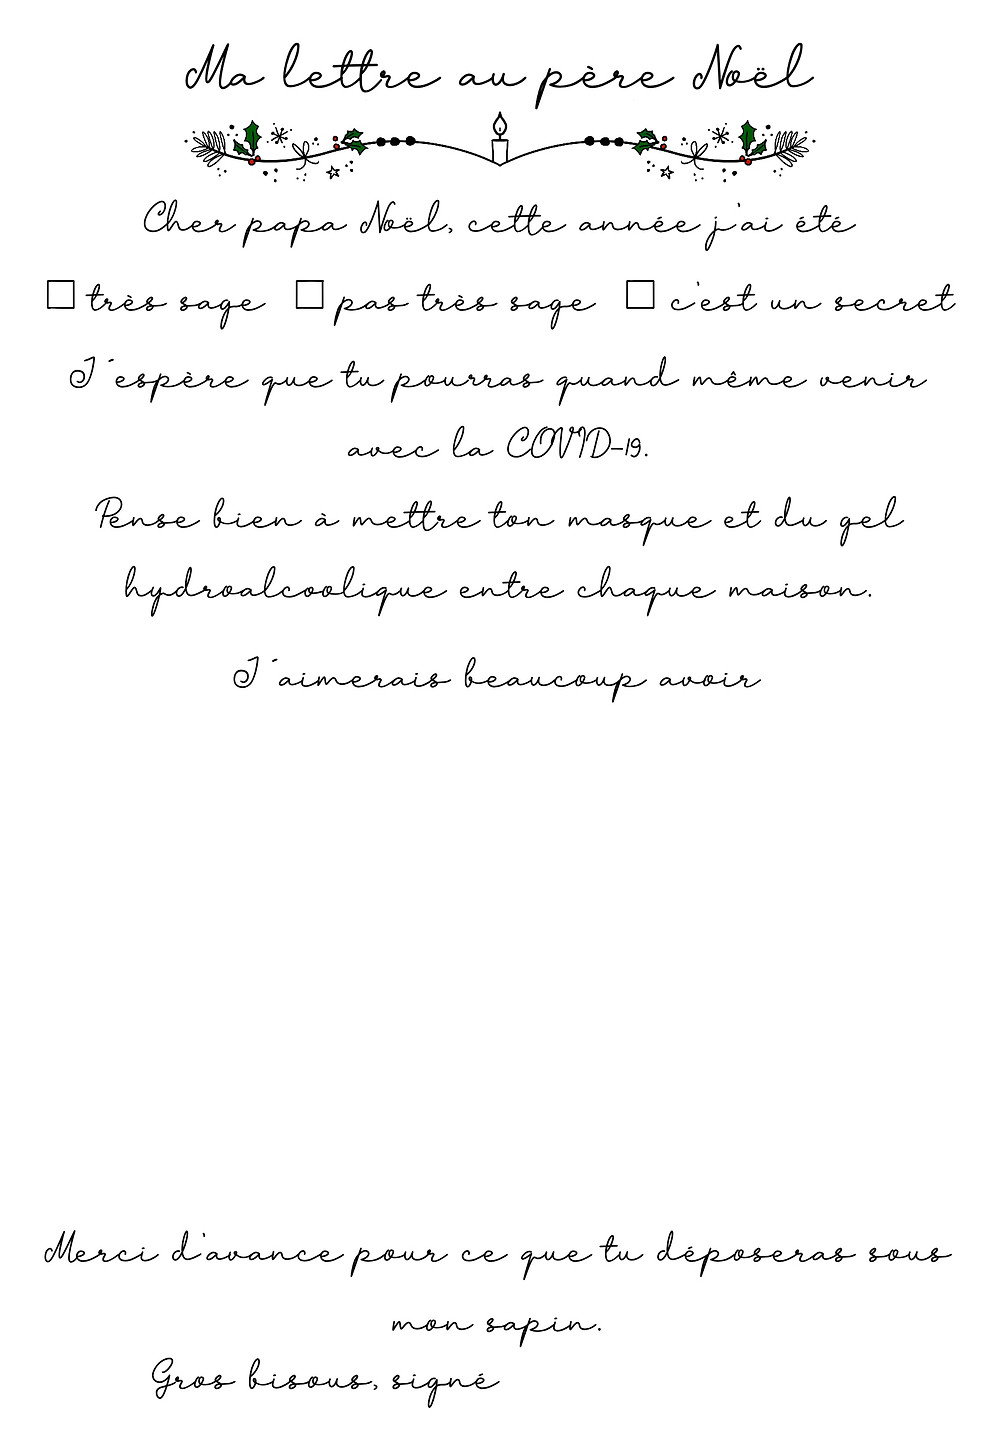 Ma lettre au père Noël
Cher papa Noël, cette année j'ai été
☐ très sage ☐ pas très sage ☐ c'est un secret
J'espère que tu pourras quand même venir
avec la COVID-19.
Pense bien à mettre ton masque et du gel
hydroalcoolique entre chaque maison.
J'aimerais beaucoup avoir
Merci d'avance pour ce que tu déposeras sous
mon sapin.
Gros bisous, signé